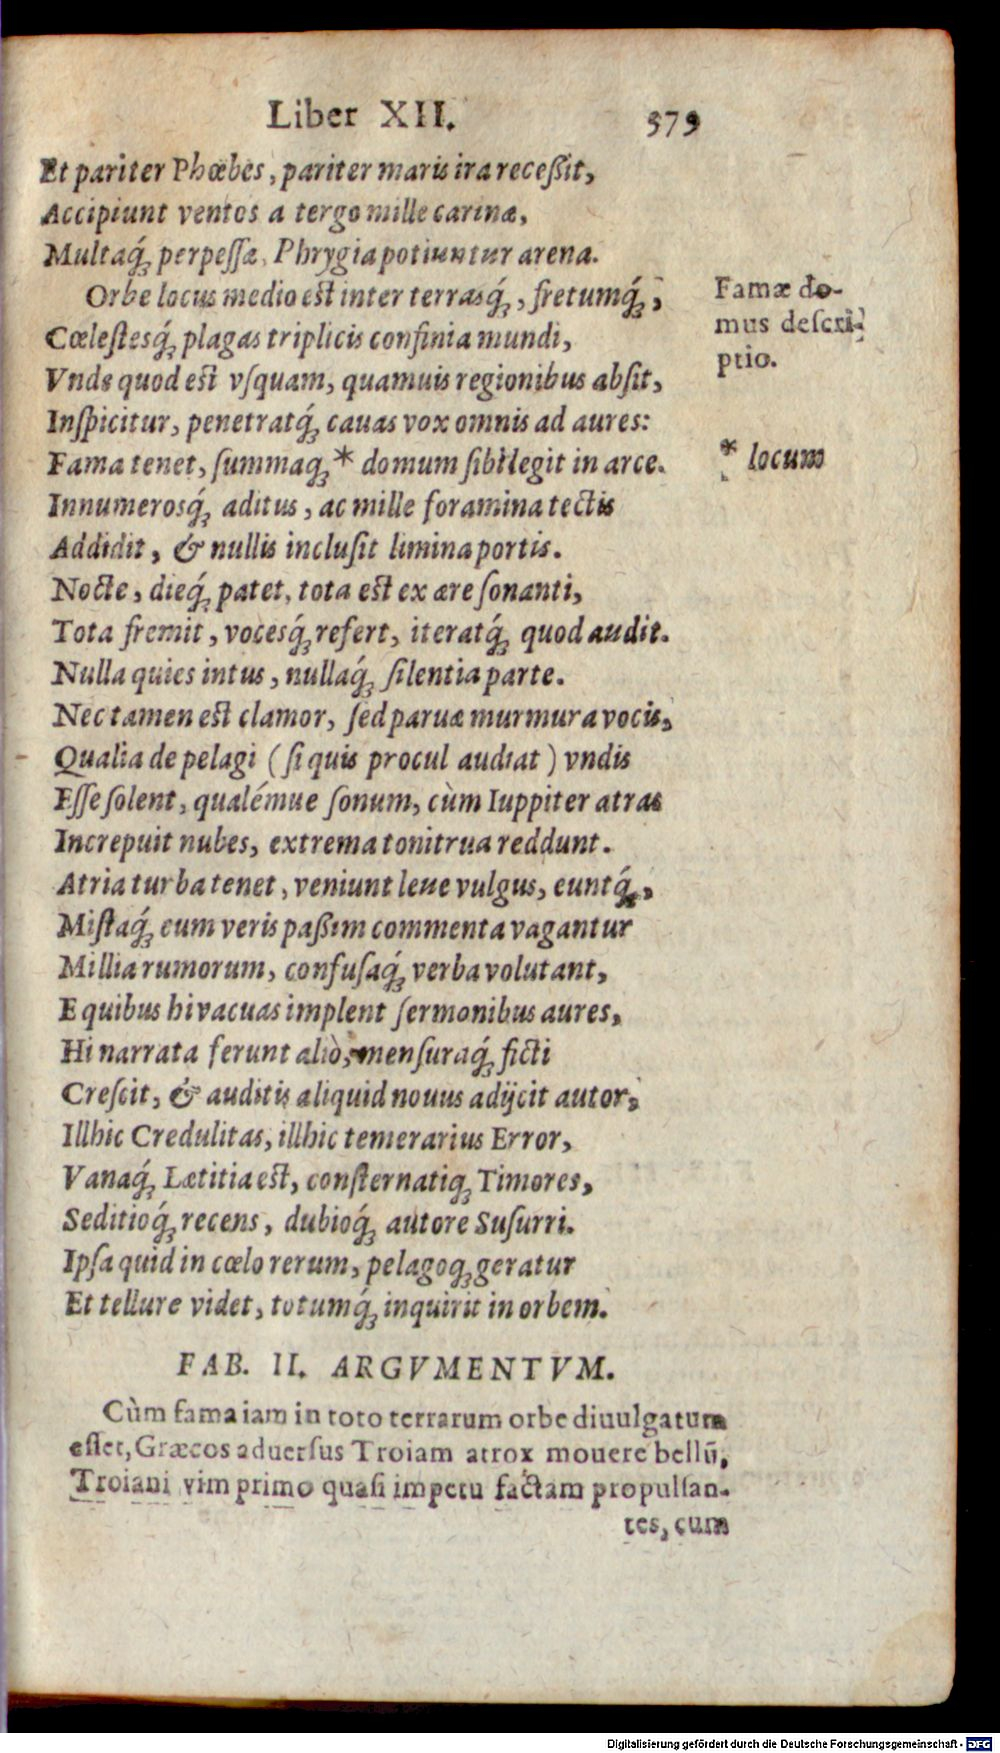 Liber XII. 379
Et pariter Phœbes, pariter maris ira receßit,
Accipiunt ventos a tergo mille carinæ,
Multaq́; perpeſſæ, Phrygia potiuntur arena.
Orbe locus medio est inter terrasq́;, fretumq́;,
Cœleſtesq́; plagas triplicis confinia mundi,
Vnde quod est vſquam, quamuis regionibus abſit,
Inſpicitur, penetratq́; cauas vox omnis ad aures:
Fama tenet, ſummaq; * domum ſibi legit in arce.
Innumerosq́; aditus, ac mille foramina tectis
Addidit, & nullis incluſit limina portis.
Nocte, dieq́; patet, tota est ex ære ſonanti,
Tota fremit, vocesq́; refert, iteratq́; quod audit.
Nulla quies intus, nullaq́; ſilentia parte.
Nec tamen est clamor, ſed paruæ murmura vocis,
Qualia de pelagi (ſi quis procul audiat) vndis
Eſſe ſolent, qualémue ſonum, cùm Iuppiter atras
Increpuit nubes, extrema tonitrua reddunt.
Atria turba tenet, veniunt leue vulgus, euntq́;,
Miſtaq́; cum veris paßim commenta vagantur
Millia rumorum, confuſaq́; verba volutant,
E quibus hi vacuas implent ſermonibus aures,
Hi narrata ferunt aliò, menſuraq́; ficti
Creſcit, & auditis aliquid nouus adijcit autor,
Illhic Credulitas, illhic temerarius Error,
Vanaq́; Lætitia est, conſternatiq; Timores,
Seditioq́; recens, dubioq́; autore Suſurri.
Ipſa quid in cœlo rerum, pelagoq; geratur
Et tellure videt, totumq́; inquirit in orbem.
Famæ do-
mus deſcri-
ptio.
* locum
FAB. II. ARGVMENTVM.
Cùm fama iam in toto terrarum orbe diuulgatum
eſſet, Græcos aduerſus Troiam atrox mouere bellū,
Troiani vim primo quaſi impetu factam propulſan-
tes, cum
Digitalisierung gefördert durch die Deutsche Forschungsgemeinschaft - DFG